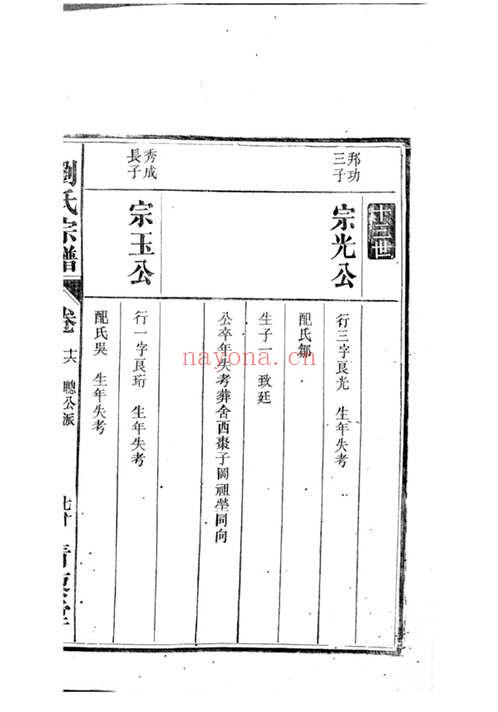 十三世
邦功
三子
宗光公
行三字良光 生年失考
配氏鄒
生子一 致廷
公卒年失考葬舍西棗子岡祖塋同向
秀成
長子
宗玉公
行一字良珩 生年失考
配氏吳 生年失考
劉氏宗譜
卷
聰公派
nayona.cn